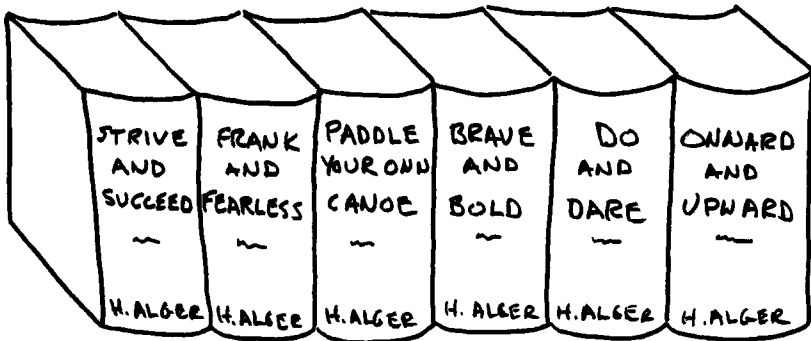 STRIVE
AND
SUCCEED
~
H. ALGER
FRANK
AND
FEARLESS
~
H. ALGER
PADDLE
YOUR OWN
CANOE
~
H. ALGER
BRAVE
AND
BOLD
~
H. ALGER
DO
AND
DARE
~
H. ALGER
ONWARD
AND
UPWARD
~
H. ALGER